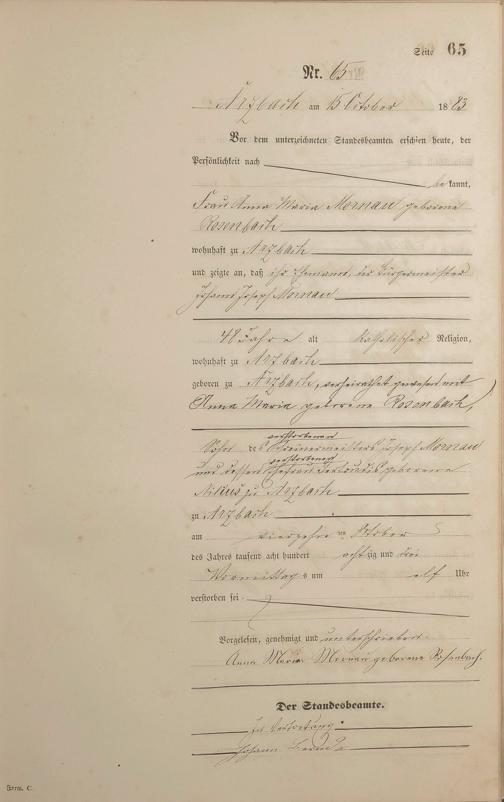 Seite 65
Nr. 65
Arzbach am 15 October 1883
Vor dem unterzeichneten Standesbeamten erschien heute, der
Persönlichkeit nach
be kannt,
Frau Anna Maria Mornau geborene
Rosenbach
wohnhaft zu Arzbach
und zeigte an, daß ihr Ehemann, der Bürgermeister
Johann Joseph Mornau
48 Jahre alt katholischer Religion,
wohnhaft zu Arzbach
geboren zu Arzbach, verheirathet gewesen mit
Anna Maria geborene Rosenbach,
verstorbenen
Sohn des Schreinermeisters Joseph Mornau
verstorbenen
und dessen Ehefrau geborene
zu Arzbach
zu Arzbach
am vierzehn ten October
des Jahres tausend acht hundert acht zig und drei
Vormittags um elf Uhr
verstorben sei
Vorgelesen, genehmigt und unterschrieben
Anna Maria Mornau geborene Rosenbach.
Der Standesbeamte.
In Vertretung.
Johann
Form. C.